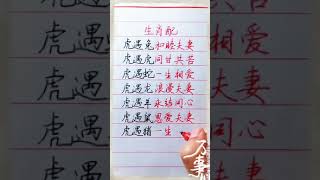 生肖配
虎遇兔和睦夫妻
虎遇虎同甘共苦
虎遇蛇一生相爱
虎遇龙浪漫夫妻
虎遇羊永结同心
虎遇鼠恩爱夫妻
虎遇猪一生
相爱
夫妻
同心
万事